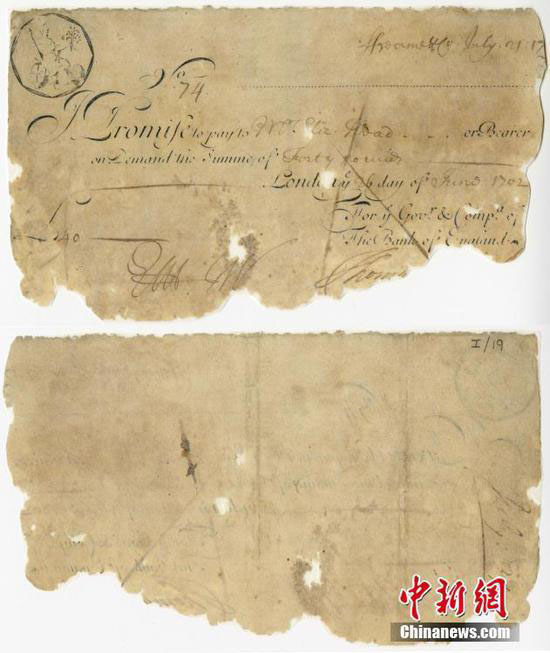 Freame & Co July. 21. 17
No 74
I Promise to pay to Mrs. Eliz. Head . . . or Bearer
on Demand the Summe of Forty pounds
London ye 26 day of June 1702
For ye Govr. & Compa. of
The Bank of England
£ 40
Thomas
I/19
中新網
Chinanews.com